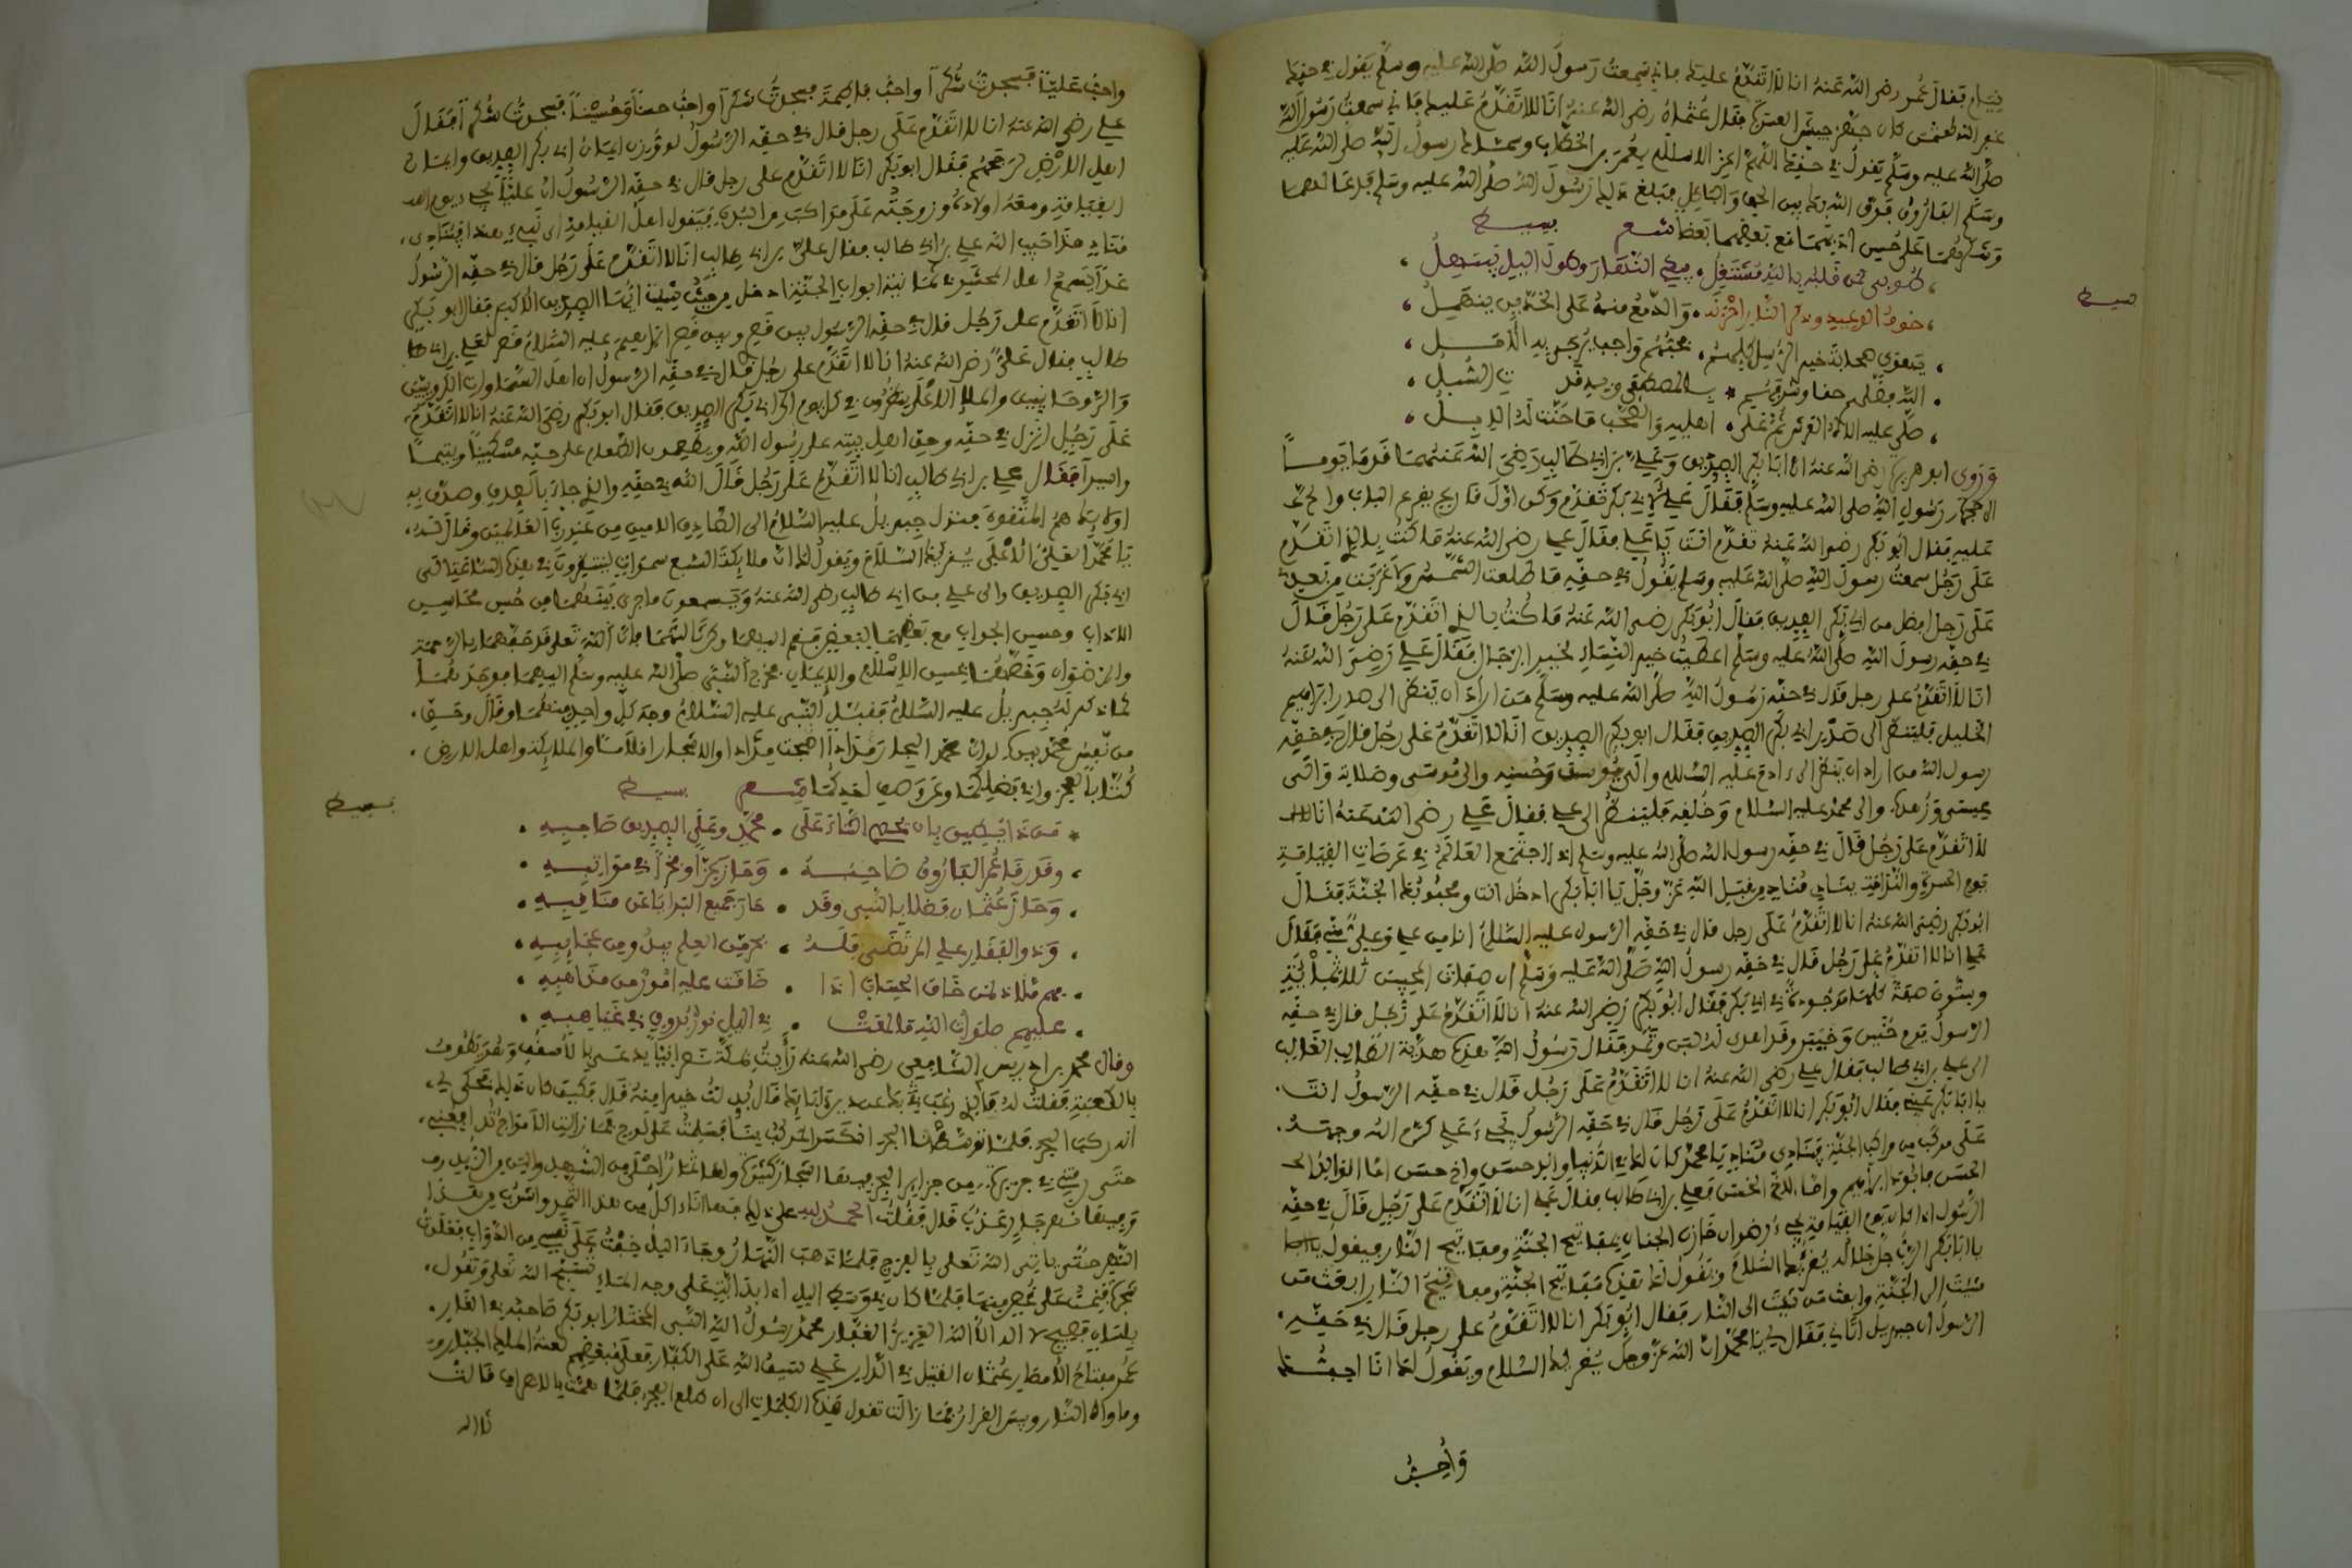 فقال عمر رضي الله عنه انا لا اتقدم عليك فاني سمعت رسول الله صلى الله عليه وسلم يقول في حقك
عثمان جهز جيش العسرة فقال عثمان رضي الله عنه انا لا اتقدم عليك فاني سمعت رسول الله
صلى الله عليه وسلم يقول في حقك اللهم اعز الاسلام بعمر بن الخطاب وسماك رسول الله صلى الله عليه
وسلم الفاروق فرق الله بك بين الحق والباطل فبلغ ذلك رسول الله صلى الله عليه وسلم فدعا لهما
وشكرهما على حسن بعضهما بعضا شعر بسيط
طوبى لمن قلبه بالله مشتغل يبكي النهار وطول الليل يبتهل
خوف الوعيد وذكر النار احزنه والدمع منه على الخدين ينهمل
بسيط
الله فضلهم حقا وشرفهم
صلى عليه اله العرش ثم على اهليه والصحب ما حنت له الابل
وروى ابو هريرة رضي الله عنه ان ابا بكر الصديق وعلي بن ابي طالب رضي الله عنهما قدما يوما
الى حجرة رسول الله صلى الله عليه وسلم فقال علي لابي بكر تقدم وكن اول قارع يقرع الباب والح
عليه فقال ابو بكر رضي الله عنه تقدم انت يا علي فقال علي رضي الله عنه ما كنت بالذي اتقدم
على رجل سمعت رسول الله صلى الله عليه وسلم يقول في حقه ما طلعت الشمس ولا غربت من بعدي
على رجل افضل من ابي بكر الصديق فقال ابو بكر رضي الله عنه ما كنت بالذي اتقدم على رجل قال
في حقه رسول الله صلى الله عليه وسلم اعطيت خير النساء لخير الرجال فقال علي رضي الله عنه
انا لا اتقدم على رجل قال في حقه رسول الله صلى الله عليه وسلم من اراد ان ينظر الى صدر ابراهيم
الخليل فلينظر الى صدر ابي بكر الصديق فقال ابو بكر الصديق انا لا اتقدم على رجل قال في حقه
رسول الله من اراد ان ينظر الى ادم عليه السلام والى يوسف وحسنه والى موسى وصلاته والى
عيسى وزهده والى محمد عليه السلام وخلقه فلينظر الى علي فقال علي رضي الله عنه انا
لا اتقدم على رجل قال في حقه رسول الله صلى الله عليه وسلم اذا اجتمع العالم في عرصات القيامة
يوم الحسرة والندامة ينادي مناد من قبل الله عز وجل يا ابا بكر ادخل انت ومحبوك الجنة فقال
ابو بكر رضي الله عنه انا لا اتقدم على رجل قال في حقه الرسول عليه السلام انا من علي وعلي مني فقال
علي انا لا اتقدم على رجل قال في حقه رسول الله صلى الله عليه وسلم ان صفات المحبين ثلاثمائة
وستون صفة كلها موجودة في ابي بكر فقال ابو بكر رضي الله عنه انا لا اتقدم على رجل قال في حقه
الرسول يوم حنين وخيبر وقد اهدي له لبن وتمر فقال رسول الله هذه هدية الطالب الغالب
الى علي بن ابي طالب فقال علي رضي الله عنه انا لا اتقدم على رجل قال في حقه الرسول انت
يا ابا بكر عيني فقال ابو بكر انا لا اتقدم على رجل قال في حقه الرسول يجيء علي كرم الله وجهه
على مركب من مراكب الجنة فينادي مناد يا محمد كان لك في الدنيا والد حسن واخ حسن اما الوالد
الحسن فابوك ابراهيم واما الاخ الحسن فعلي بن ابي طالب فقال علي انا لا اتقدم على رجل قال في حقه
الرسول اذا كان يوم القيامة يجيء رضوان خازن الجنان بمفاتيح الجنة ومفاتيح النار ويقول
يا ابا بكر الرب جل جلاله يقرئك السلام ويقول لك هذه مفاتيح الجنة ومفاتيح النار ابعث من
شئت الى الجنة وابعث من شئت الى النار فقال ابو بكر انا لا اتقدم على رجل قال في حقه
الرسول ان جبريل اتاني فقال لي يا محمد ان الله عز وجل يقرئك السلام ويقول لك انا احبك
واحب
واحب عليا فسجدت شكرا واحب فاطمة فسجدت شكرا واحب حسنا وحسينا فسجدت شكرا فقال
علي رضي الله عنه انا لا اتقدم على رجل قال في حقه الرسول لو وزن ايمان ابي بكر الصديق وايمان
اهل الارض لرجحهم فقال ابو بكر انا لا اتقدم على رجل قال في حقه الرسول ان عليا يجيء يوم
القيامة ومعه اولاده وزوجته على مراكب من البدن فيقول اهل القيامة اي نبي هذا فينادي
مناد هذا حبيب الله علي بن ابي طالب فقال علي بن ابي طالب انا لا اتقدم على رجل قال في حقه الرسول
غدا يسمع اهل المحشر من ثمانية ابواب الجنة ادخل من حيث شئت ايها الصديق الاكبر فقال ابو بكر
انا لا اتقدم على رجل قال في حقه الرسول بين قصري وبين قصر ابراهيم عليه السلام قصر لعلي بن ابي
طالب فقال علي رضي الله عنه انا لا اتقدم على رجل قال في حقه الرسول ان اهل السماوات الكروبيين
والروحانيين والملإ الاعلى ينظرون في كل يوم الى ابي بكر الصديق فقال ابو بكر رضي الله عنه انا لا اتقدم
على رجل انزل في حقه وحق اهل بيته على رسول الله ويطعمون الطعام على حبه مسكينا ويتيما
واسيرا فقال علي بن ابي طالب انا لا اتقدم على رجل قال الله في حقه والذي جاء بالصدق وصدق به
اولئك هم المتقون فنزل جبريل عليه السلام الى الصادق الامين من عند رب العالمين وقال له
يا محمد العلي الاعلى يقرئك السلام ويقول لك ان ملائكة السبع سموات لينظرون في هذه الساعة الى
ابي بكر الصديق والى علي بن ابي طالب رضي الله عنه ويسمعون ما جرى بينهما من حسن
الاداب وحسن الجواب مع بعضهما البعض فقم اليهما وكن ثالثهما فان الله تعالى قد حفهما بالرحمة
والرضوان وخصهما بحسن الاسلام والايمان فخرج النبي صلى الله عليه وسلم اليهما فوجدهما
كما ذكر له جبريل عليه السلام فقبل النبي عليه السلام وجه كل واحد منهما وقال وحق
من نفس محمد بيده لو ان البحار مدادا اصبحت مدادا والاشجار اقلاما والملائكة واهل الارض
كتابا لعجزوا عن فضلكما وعن وصف اجركما شعر بسيط
من ذا يطيق بان يحصي الثناء على محمد وعلى الصديق صاحبه
بسيط
وقد رقا عمر الفاروق صاحبه وحاز عزا وفخرا في مراتبه
وحاز عثمان فضلا بالنبي وقد حاز جميع البرايا عن مناقبه
وذو الفقار علي المرتضى فله بحر من العلم يبدو من عجايبه
هم ملاذ لمن خاف الحساب اذا ضاقت عليه امور من مذاهبه
عليهم صلوات الله ما لمعت في الليل نور بدور في غياهبه
وقال محمد بن ادريس الشافعي رضي الله عنه رايت بمكة نصرانيا يدعى بالاسقف وهو يطوف
بالكعبة فقلت له ما الذي رغبك عن دين ابائك فقال بدلت خيرا منه فقال وكيف كان ذلك فحكى لي
انه ركب البحر فلما توسطنا البحر انكسر المركب بنا فسلمت على لوح فما زالت الامواج تدافعني
حتى رمتني في جزيرة من جزاير البحر فيها اشجار كثيرة ولها ثمار احلى من الشهد والين من الزبد
وفيها نهر جار عذب قال فقلت الحمد لله على ذلك فها انا ذا اكل من هذا الثمر واشرب من هذا
النهر حتى ياتي الله تعالى بالفرج فلما ذهب النهار وجاء الليل خفت على نفسي من الدواب فعلوت
شجرة فنمت على غصن منها فلما كان في وسط الليل اذا بدابة على وجه الماء تسبح الله تعالى وتقول
بلسان فصيح لا اله الا الله العزيز الغفار محمد رسول الله النبي المختار ابو بكر صاحبه في الغار
عمر مفتاح الامصار عثمان القتيل في الدار علي سيف الله على الكفار فعلى مبغضهم لعنة الملك الجبار
وماواه النار وبيس القرار فما زالت تقول هذه الكلمات الى ان طلع الفجر فلما همت بالانصراف قالت